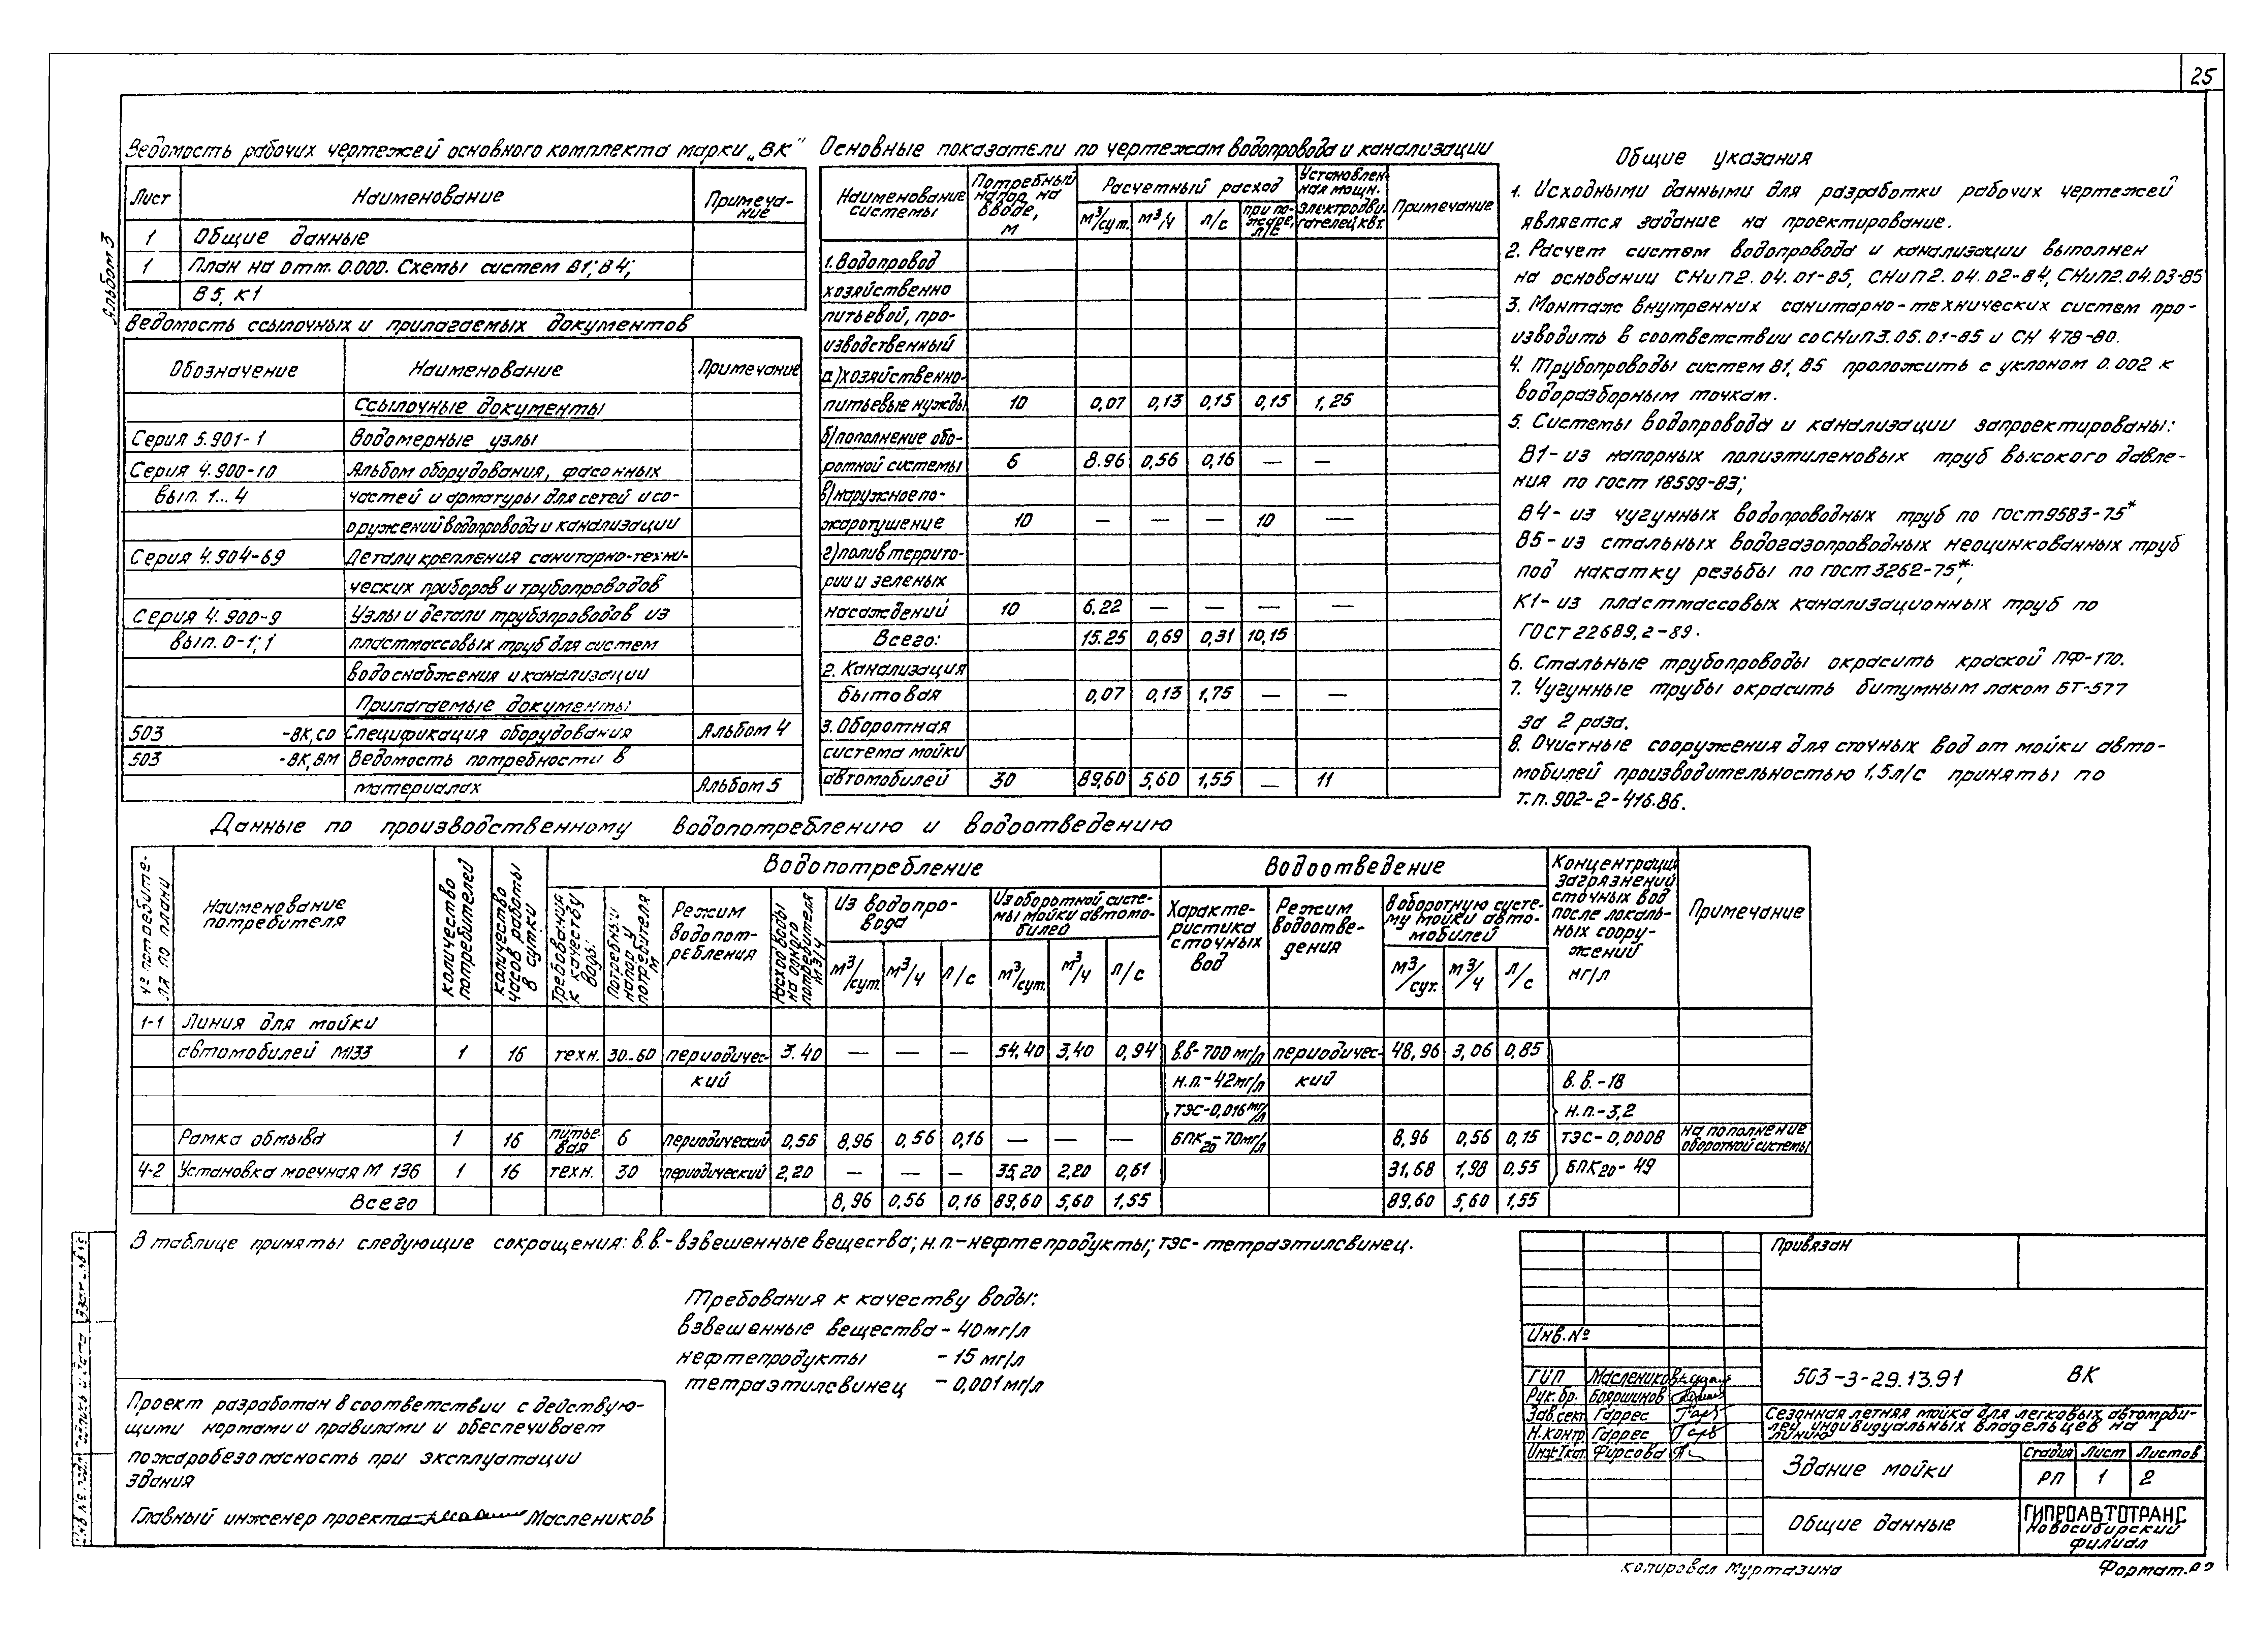 25
Альбом 3
Ведомость рабочих чертежей основного комплекта марки „ВК"
Лист Наименование Примеча-
ние
1 Общие данные
1 План на отм. 0.000. Схемы систем В1; В4;
В5, К1
Ведомость ссылочных и прилагаемых документов
Обозначение Наименование Примечание
Ссылочные документы
Серия 5.901-1 Водомерные узлы
Серия 4.900-10 Альбом оборудования, фасонных
вып. 1...4 частей и арматуры для сетей и со-
оружений водопровода и канализации
Серия 4.904-69 Детали крепления санитарно-техни-
ческих приборов и трубопроводов
Серия 4.900-9 Узлы и детали трубопроводов из
вып. 0-1; 1 пластмассовых труб для систем
водоснабжения и канализации
Прилагаемые документы
503 -ВК,СО Спецификация оборудования Альбом 4
503 -ВК,ВМ Ведомость потребности в
материалах Альбом 5
Основные показатели по чертежам водопровода и канализации
Наименование системы Потребный напор на вводе, м Расчетный расход Установлен-
ная мощн. электродви-
гателей, квт. Примечание
м³/сут. м³/ч л/с при по-
жаре, л/с
1. Водопровод
хозяйственно
питьевой, про-
изводственный
а) хозяйственно-
питьевые нужды 10 0,07 0,13 0,15 0,15 1,25
б) пополнение обо-
ротной системы 6 8.96 0,56 0,16 — —
в) наружное по-
жаротушение 10 — — — 10 —
г) полив террито-
рии и зеленых
насаждений 10 6.22 — — — —
Всего: 15.25 0,69 0,31 10,15
2. Канализация
бытовая 0,07 0,13 1,75 — —
3. Оборотная
система мойки
автомобилей 30 89,60 5,60 1,55 — 11
Общие указания
1. Исходными данными для разработки рабочих чертежей
является задание на проектирование.
2. Расчет систем водопровода и канализации выполнен
на основании СНиП2.04.01-85, СНиП2.04.02-84, СНиП2.04.03-85
3. Монтаж внутренних санитарно-технических систем про-
изводить в соответствии со СНиП3.05.01-85 и СН 478-80.
4. Трубопроводы систем В1, В5 проложить с уклоном 0.002 к
водоразборным точкам.
5. Системы водопровода и канализации запроектированы:
В1- из напорных полиэтиленовых труб высокого давле-
ния по ГОСТ 18599-83;
В4- из чугунных водопроводных труб по ГОСТ 9583-75*
В5- из стальных водогазопроводных неоцинкованных труб
под накатку резьбы по ГОСТ 3262-75*;
К1- из пластмассовых канализационных труб по
ГОСТ 22689,2-89.
6. Стальные трубопроводы окрасить краской ПФ-170.
7. Чугунные трубы окрасить битумным лаком БТ-577
за 2 раза.
8. Очистные сооружения для сточных вод от мойки авто-
мобилей производительностью 1,5л/с приняты по
т.п. 902-2-416.86.
Данные по производственному водопотреблению и водоотведению
№ потребите-
ля по плану Наименование потребителя Количество потребителей Количество часов работы в сутки Водопотребление Водоотведение Концентрация загрязнений сточных вод после локаль-
ных соору-
жений мг/л Примечание
Требования к качеству воды. Потребный напор у потребителя м Режим водопот-
ребления Расход воды на одного потребителя м3/ч Из водопро-
вода Из оборотной систе-
мы мойки автомо-
билей Характе-
ристика сточных вод Режим водоотве-
дения В оборотную систе-
му мойки авто-
мобилей
м³/сут. м³/ч л/с м³/сут. м³/ч л/с м³/сут. м³/ч л/с
1-1 Линия для мойки
автомобилей М133 1 16 техн. 30..60 периодичес- 3.40 — — — 54,40 3,40 0,94 в.в-700 мг/л периодичес- 48,96 3,06 0,85
кий н.п.-42мг/л кий в.в.-18
ТЭС-0,016мг/л н.п.-3,2
Рамка обмыва 1 16 питье-
вая 6 периодический 0,56 8,96 0,56 0,16 — — — БПК20-70мг/л 8,96 0,56 0,15 ТЭС-0,0008 на пополнение
оборотной системы
4-2 Установка моечная М 136 1 16 техн. 30 периодический 2,20 — — — 35,20 2,20 0,61 31,68 1,98 0,55 БПК20-49
Всего 8,96 0,56 0,16 89,60 5,60 1,55 89.60 5,60 1,55
В таблице приняты следующие сокращения: в.в.-взвешенные вещества; н.п.-нефтепродукты; тэс-тетраэтилсвинец.
Требования к качеству воды:
взвешенные вещества - 40мг/л
нефтепродукты - 15 мг/л
тетраэтилсвинец - 0,001мг/л
Проект разработан в соответствии с действую-
щими нормами и правилами и обеспечивает
пожаробезопасность при эксплуатации
здания
Главный инженер проекта Маслеников
Привязан
Инв.№
ГИП Маслеников
Рук.бр. Бояршинов
Зав.сект. Гаррес
Н.контр Гаррес
Инж.Iкат. Фирсова
503-3-29.13.91 ВК
Сезонная летняя мойка для легковых автомоби-
лей индивидуальных владельцев на 1
линию
Здание мойки
Стадия Лист Листов
РП 1 2
Общие данные
ГИПРОАВТОТРАНС
Новосибирский
филиал
Копировал Муртазина
Формат